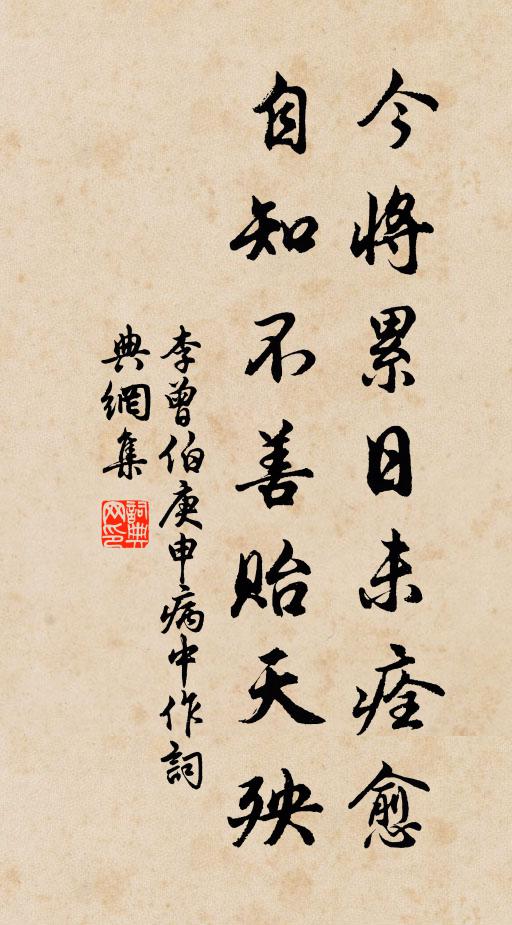 今將累日未痊愈
自知不善貽天殃
李曾伯庚申病中作詞
典網集
詞典網印